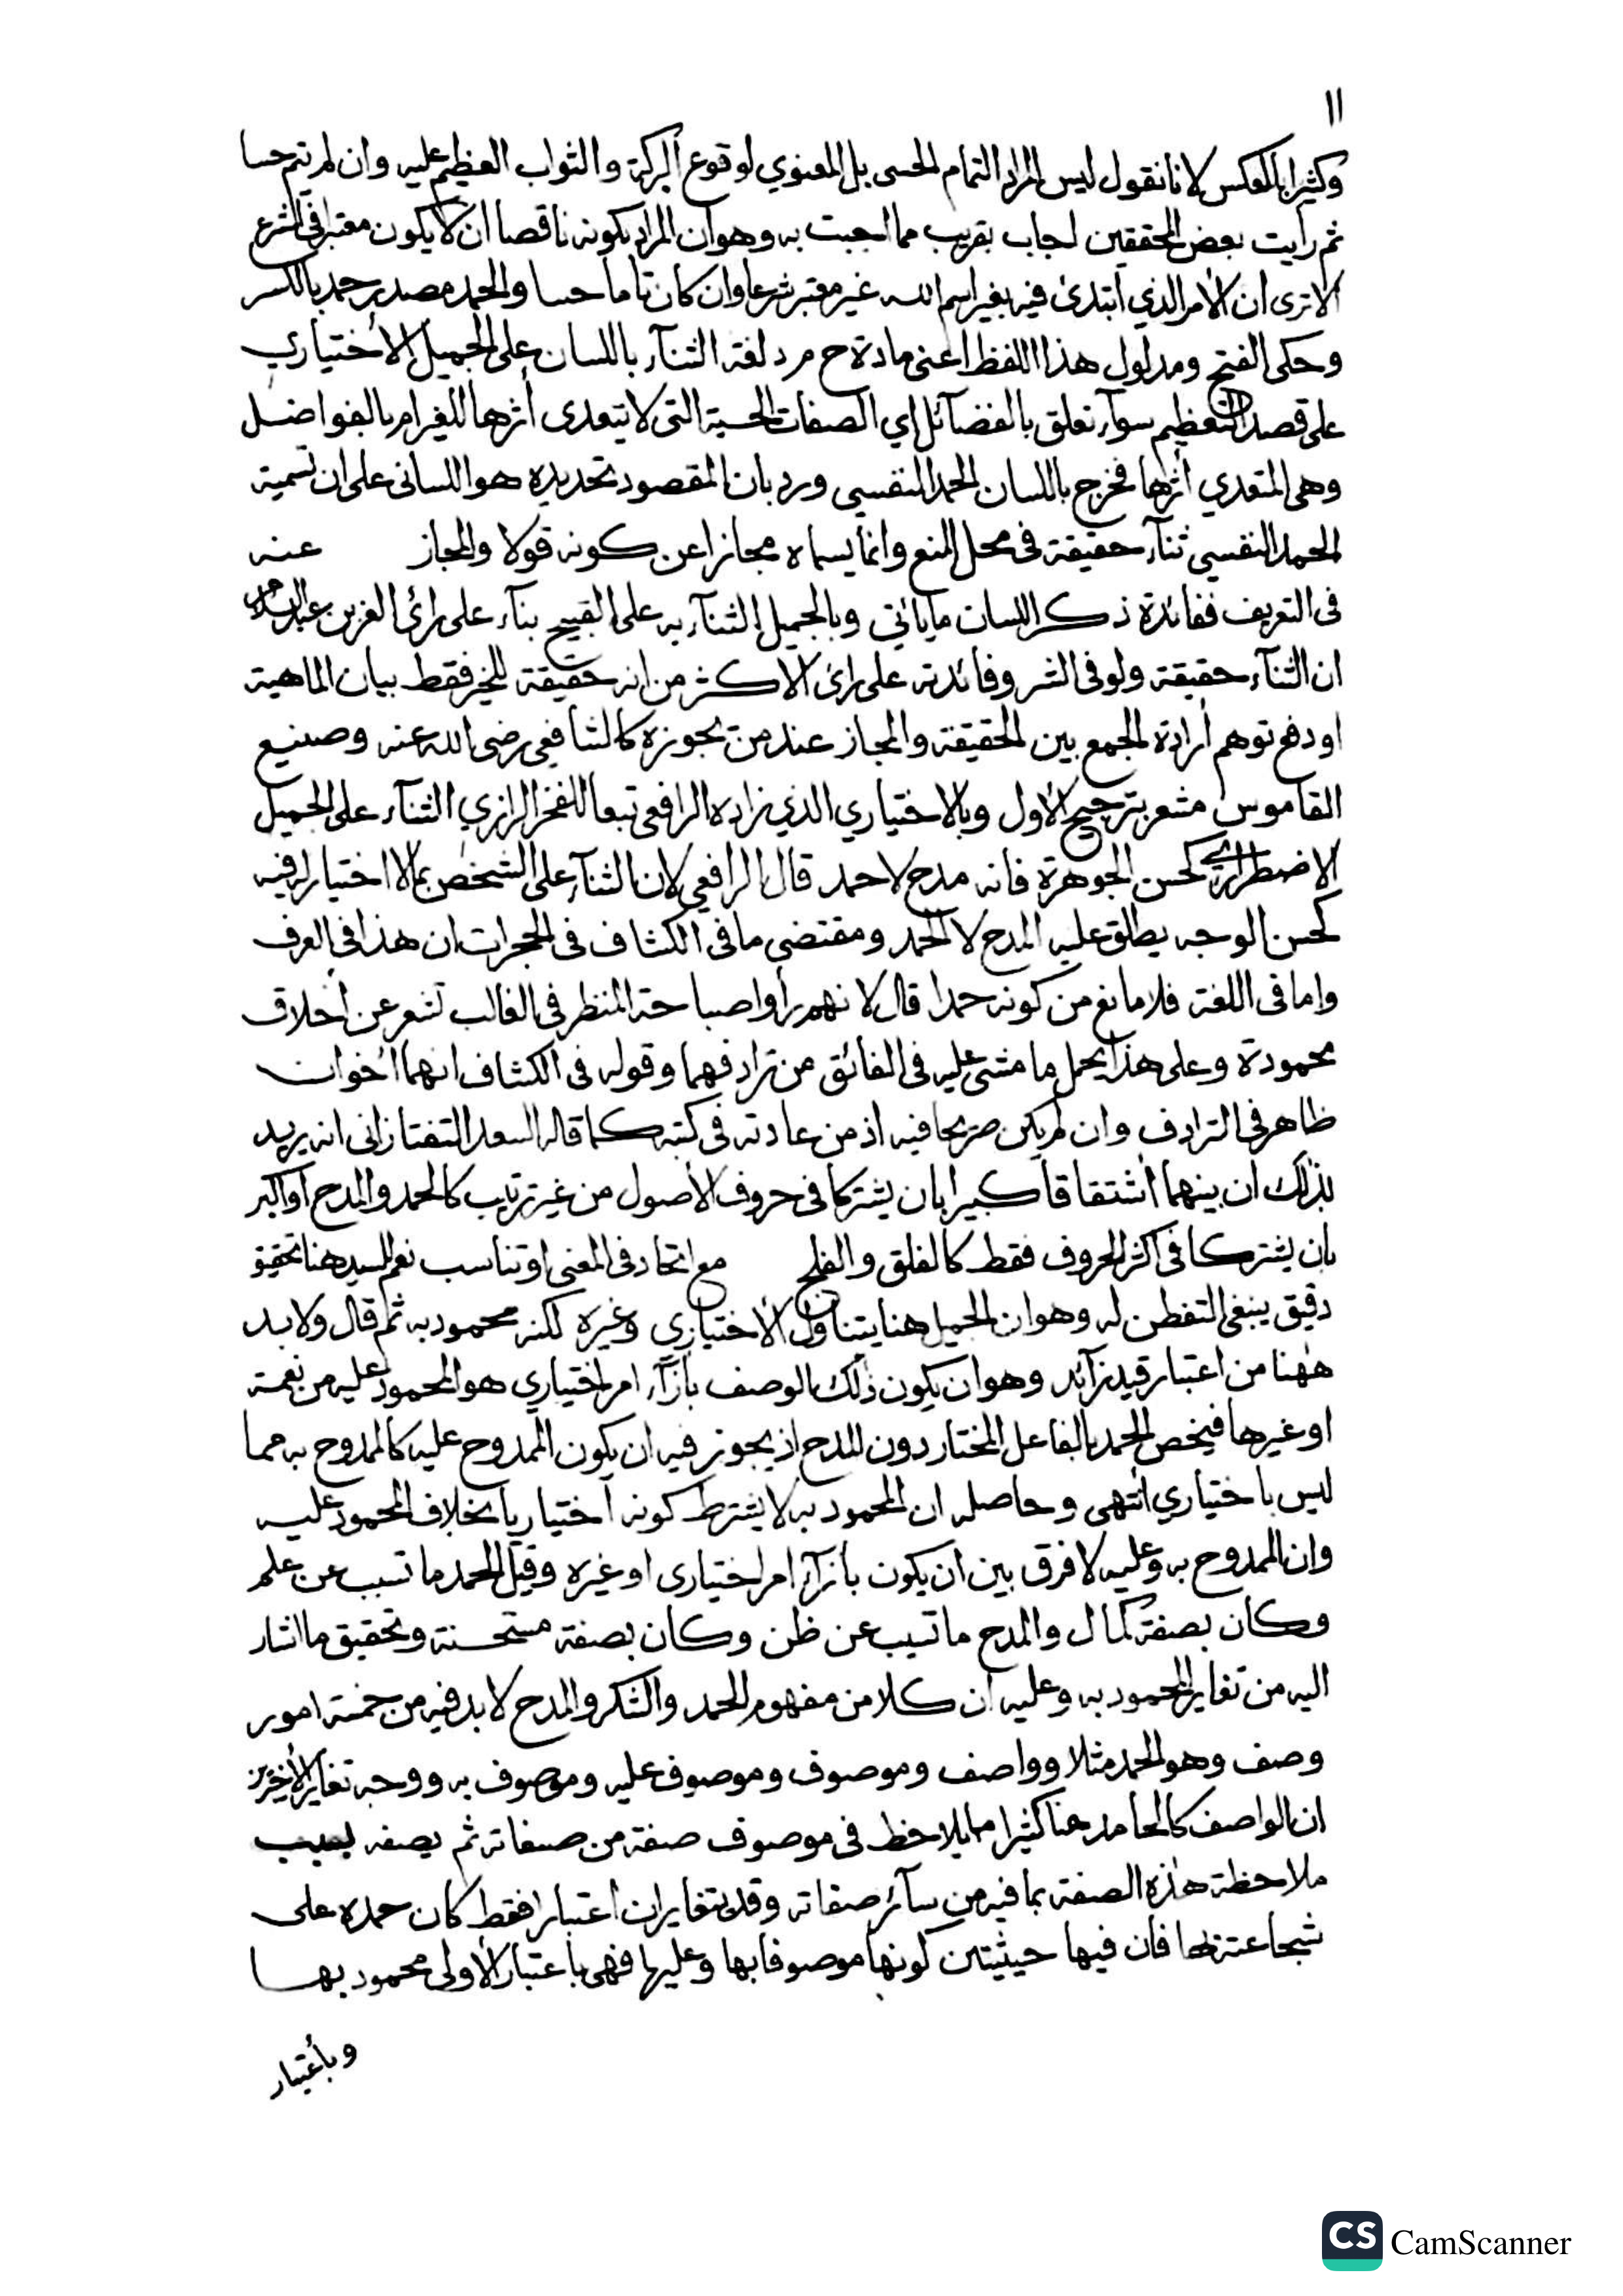 ١١
وكثيرا بالعكس لانا نقول ليس المراد التمام الحسى بل المعنوي لوقوع البركة والثواب العظيم عليه وان لم يتم حسا
ثم رأيت بعض المحققين اجاب بقريب مما اجبت به وهو ان المراد بكونه ناقصا ان لا يكون معتبرا في الشرع
الا ترى ان الأمر الذي ابتدئ فيه بغير اسم الله غير معتبر شرعا وان كان تاما حسا والحمد مصدر حمد بالكسر
وحكى الفتح ومدلول هذا اللفظ اعنى مادة ح م د لغة الثنآء باللسان على الجميل الأختياري
على قصد التعظيم سوآء تعلق بالفضآئل اي الصفات الحسية التى لا يتعدى أثرها للغير ام بالفواضل
وهى المتعدي أثرها فخرج باللسان الحمد النفسي ورد بان المقصود تحديده هو اللسانى على ان تسمية
الحمد النفسي ثنآء حقيقة فى محل المنع وانما يسماه مجازا عن كونه قولا والمجاز عنه
فى التعريف ففائدة ذكر اللسان ما يأتي وبالجميل الثنآء به على القبيح بنآء على رأى العز بن عبد السلام
ان الثنآء حقيقة ولو فى الشر وفائدته على رأى الاكثر من انه حقيقة للخير فقط بيان الماهية
او دفع توهم أرادة الجمع بين الحقيقة والمجاز عند من يجوزه كالشافعي رضى الله عنه وصنيع
القاموس مشعر بترجيح الأول وبالاختياري الذي زاده الرافعى تبعا للفخر الرازي الثنآء على الجميل
الاضطرارى كحسن الجوهرة فانه مدح لا حمد قال الرافعي لان الثنآء على الشخص بما لا اختيار له فيه
كحسن الوجه يطلق عليه المدح لا الحمد ومقتضى ما فى الكشاف فى الحجرات ان هذا فى العرف
واما فى اللغة فلا مانع من كونه حمدا قال لانهم رأوا صباحة المنظر فى الغالب تشعر عن أخلاق
محمودة وعلى هذا يحمل ما مشى عليه فى الفائق من ترادفهما وقوله فى الكشاف انهما اخوان
ظاهر فى الترادف وان لم يكن صريحا فيه اذ من عادته فى كتبه كما قاله السعد التفتازانى انه يريد
بذلك ان بينهما أشتقاقا كبيرا بان يشتركا فى حروف الأصول من غير ترتيب كالحمد والمدح أو أكبر
بان يشتركا فى اكثر الحروف فقط كالفلق والفلج مع اتحاد فى المعنى او تناسب نعم للسيد هنا تحقيق
دقيق ينبغى التفطن له وهو ان الجميل هنا يتناول الأختياري وغيره لكنه محمود به ثم قال ولابد
ههنا من اعتبار قيد زآئد وهو ان يكون ذلك الوصف بأزآء امر اختياري هو المحمود عليه من نعمة
او غيرها فيخص الحمد بالفاعل المختار دون المدح اذ يجوز فيه ان يكون الممدوح عليه كالممدوح به مما
ليس باختياري انتهى وحاصله ان المحمود به لا يشترط كونه اختياريا بخلاف المحمود عليه
وان الممدوح به وعليه لا فرق بين ان يكون بأزآء امر اختيارى او غيره وقيل الحمد ما تسبب عن علم
وكان بصفة كمال والمدح ما تسبب عن ظن وكان بصفة مستحسنة وتحقيق ما اشار
اليه من تغاير المحمود به وعليه ان كلا من مفهوم الحمد والشكر والمدح لا بد فيه من خمسة امور
وصف وهو الحمد مثلا وواصف وموصوف وموصوف عليه وموصوف به ووجه تغاير الأخيرين
ان الواصف كالحامد هنا كثيرا ما يلاحظ فى موصوف صفة من صفاته ثم يصفه بسبب
ملاحظة هذه الصفة بما فيه من سآئر صفاته وقد يتغايران اعتبارا فقط كان حمده على
شجاعته بها فان فيها حيثيتين كونها موصوفا بها وعليها فهى باعتبار الأولى محمود بها
وبأعتبار
CS CamScanner